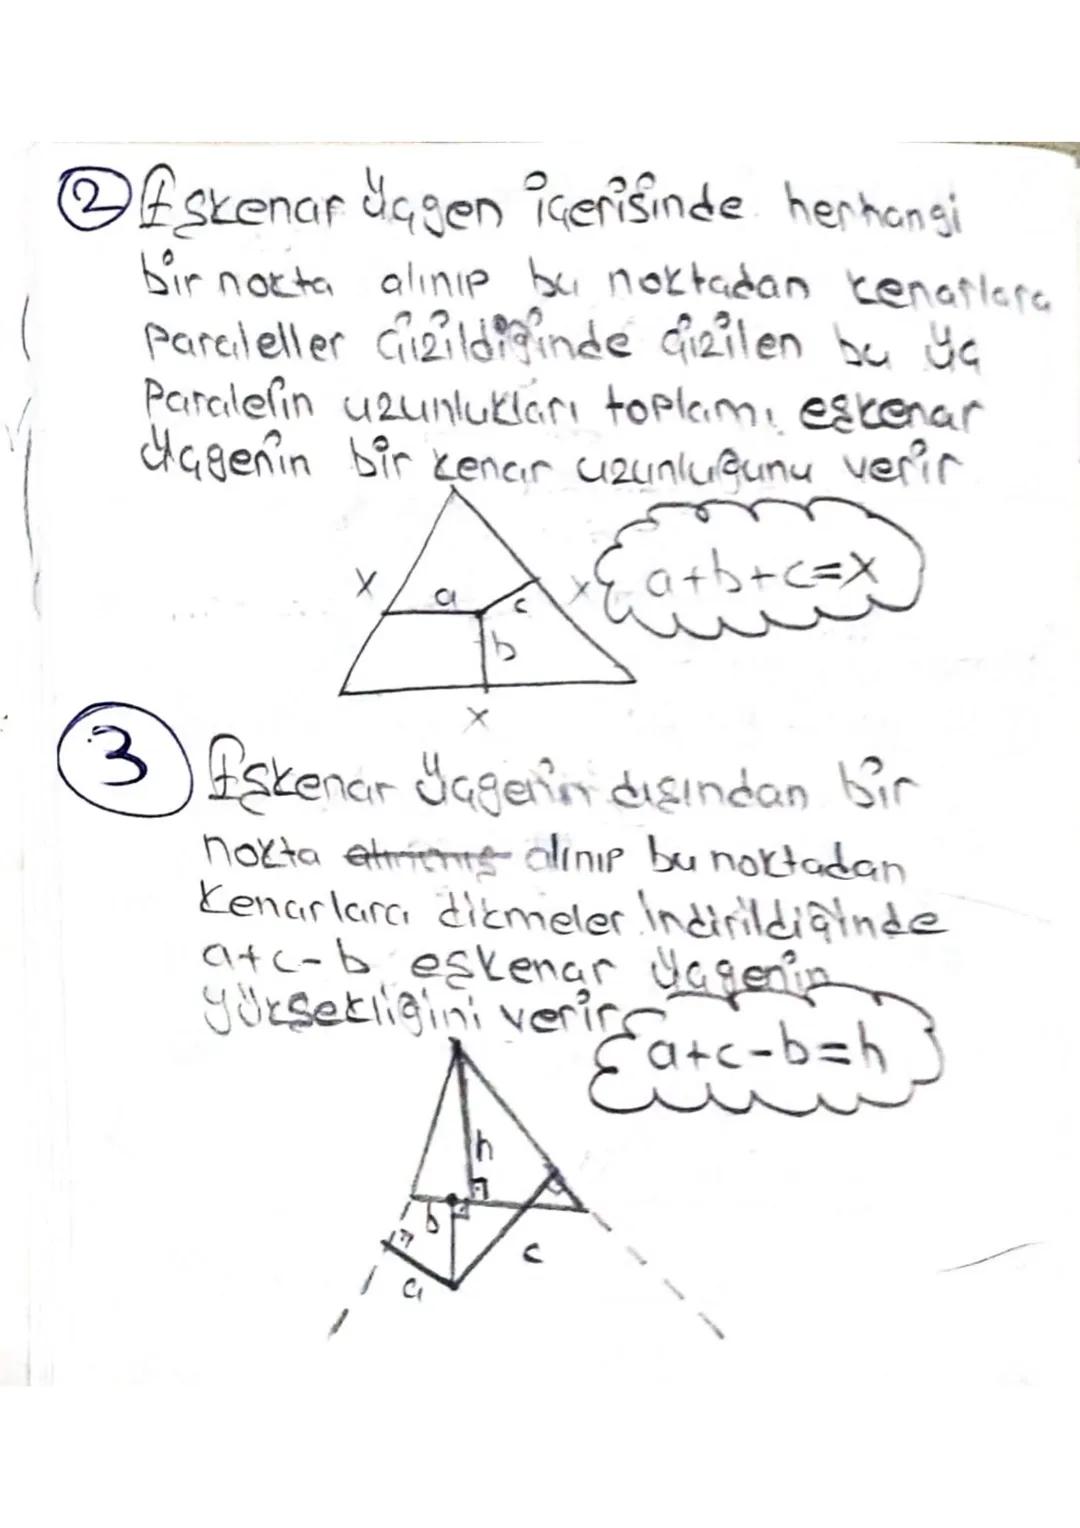 2 Eşkenar üçgen içerisinde herhangi
bir nokta alınıp bu noktadan kenarlara
paraleller çizildiğinde çizilen bu üç
paralelin uzunlukları toplamı eşkenar
üçgenin bir kenar uzunluğunu verir
x
a
c
x
a+b+c=x
b
x
3 Eşkenar üçgenin dışından bir
nokta alınıp bu noktadan
kenarlara dikmeler indirildiğinde
a+c-b eşkenar üçgenin
yüksekliğini verir
a+c-b=h
h
b
c
a